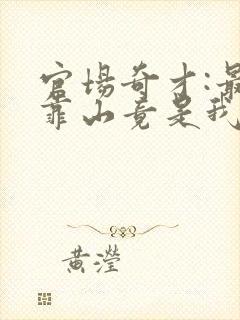 官场奇才:最
靠山竟是我
黄瀅